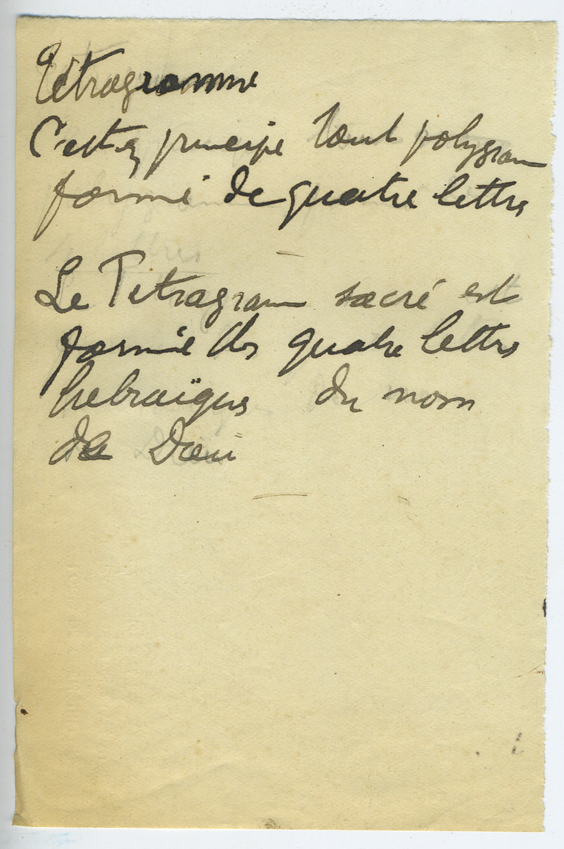 Tétragramme
C'est en principe tout polygram
formé de quatre lettres
Le Tétragram sacré est
formé des quatre lettres
hebraïques du nom
de Dieu